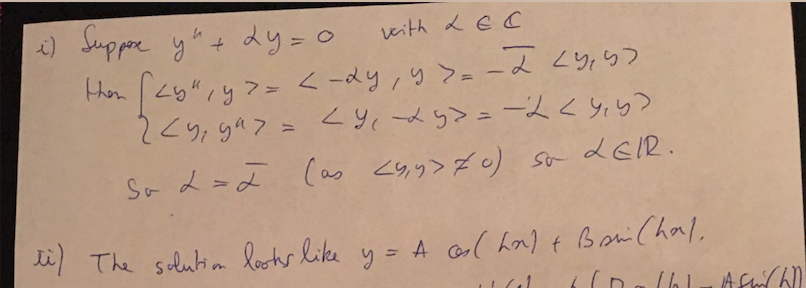 i) Suppose y" + αy = 0 with α ∈ ℂ
then { <y", y> = < -αy, y > = -ᾱ <y, y>
<y, y"> = <y, -αy> = -α <y, y>
So α = ᾱ (as <y,y> ≠ 0) so α ∈ ℝ.
ii) The solution looks like y = A cos(hx) + B sin(hx).